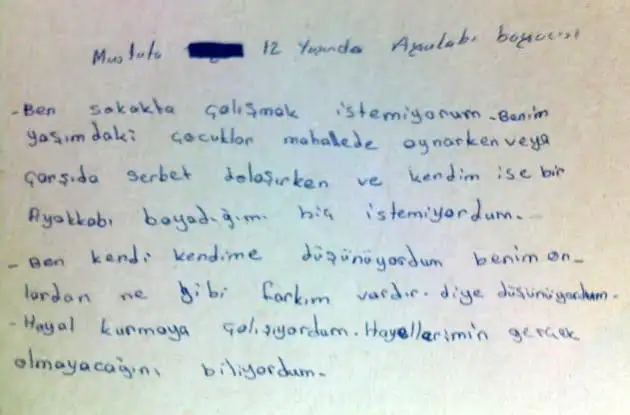 Mustafa 12 Yaşında Ayakkabı boyacısı
- Ben sokakta çalışmak istemiyorum. Benim
yaşımdaki çocuklar mahallede oynarken veya
çarşıda serbet dolaşırken ve kendim ise bir
Ayakkabı boyadığımı hiç istemiyordum.
- Ben kendi kendime düşünüyordum benim on-
lardan ne gibi farkım vardır. diye düşünüyordum.
- Hayal kurmaya çalışıyordum. Hayellerimin gerçek
olmayacağını biliyordum.